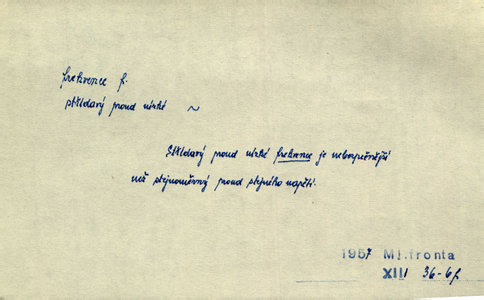 frekvence f.
střídavý proud nízké ~
Střídavý proud nízké frekvence je nebezpečnější
než stejnoměrný proud stejného napětí.
1957 Ml. fronta
XIII 36-6/